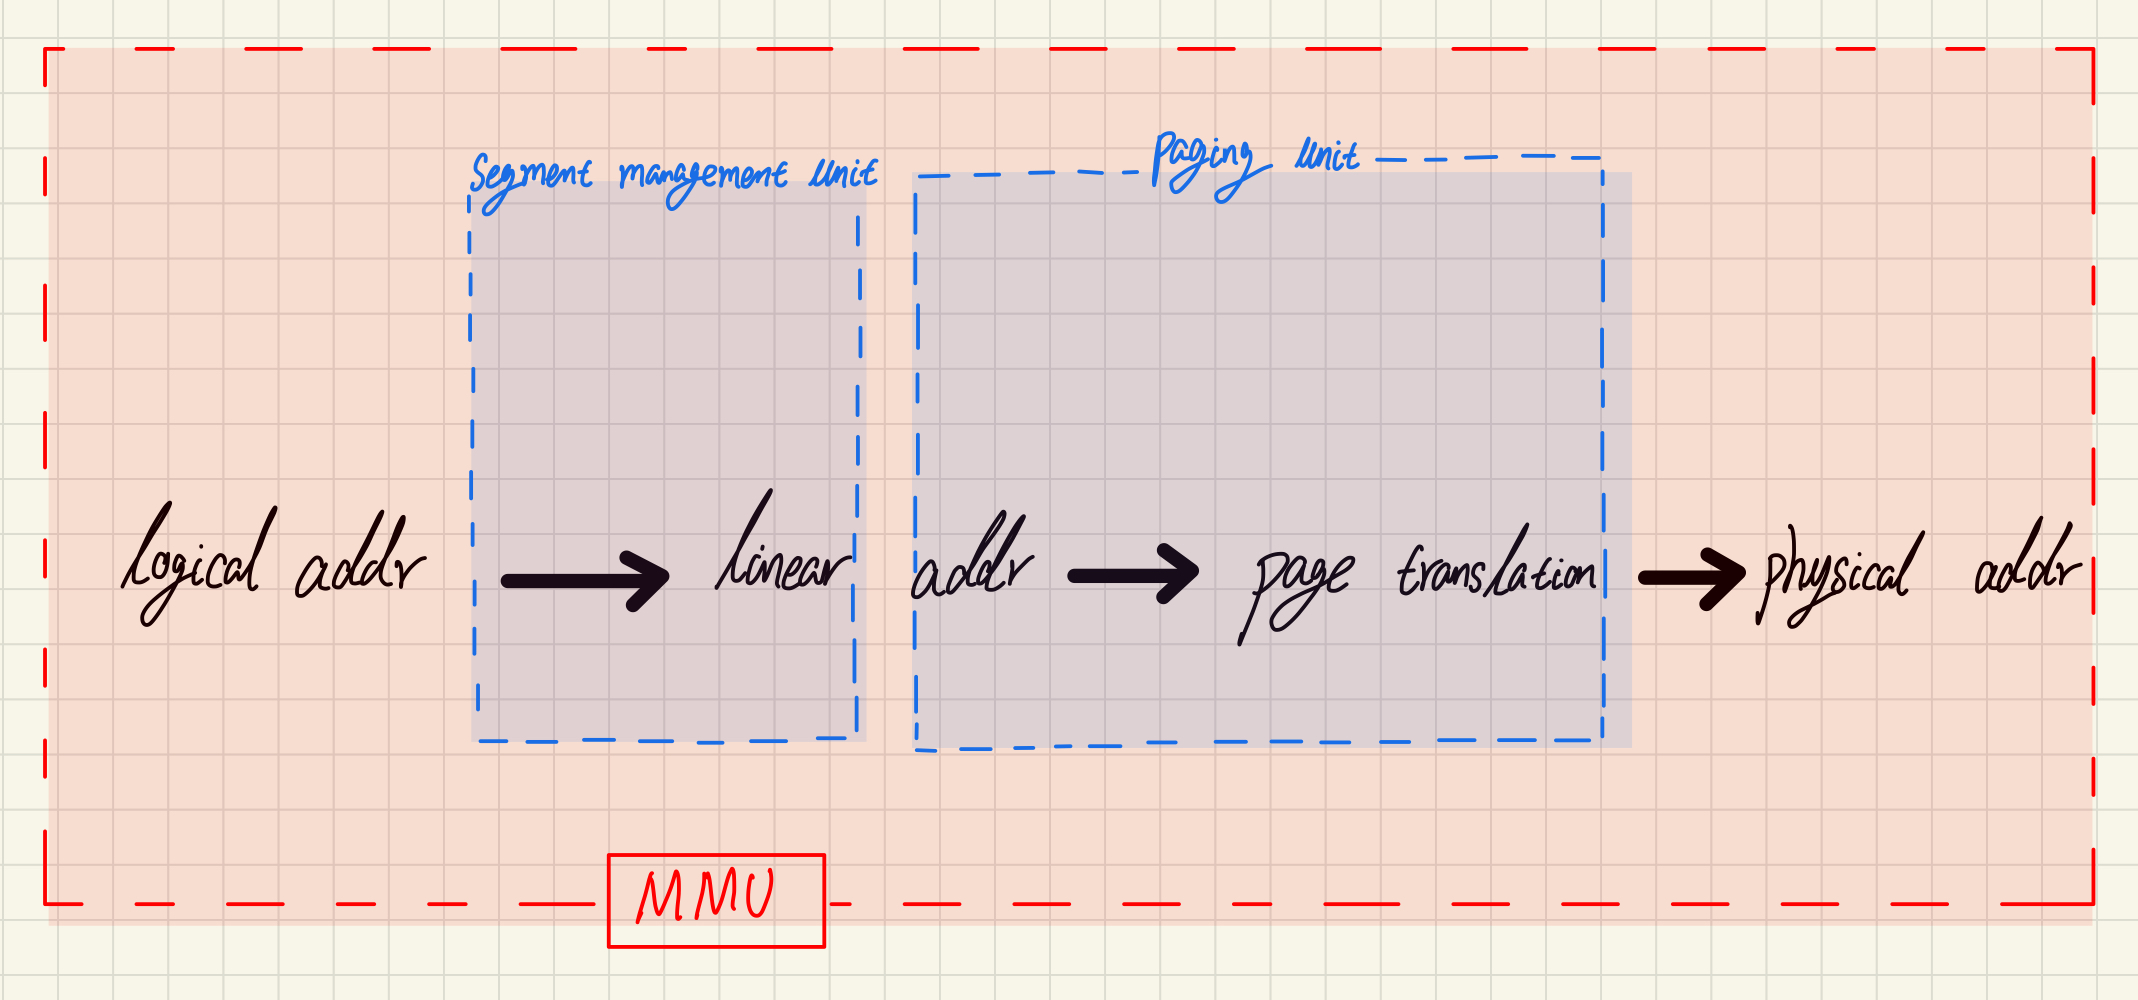 Segment management Unit
Paging Unit
logical addr → linear addr → page translation → physical addr
MMU